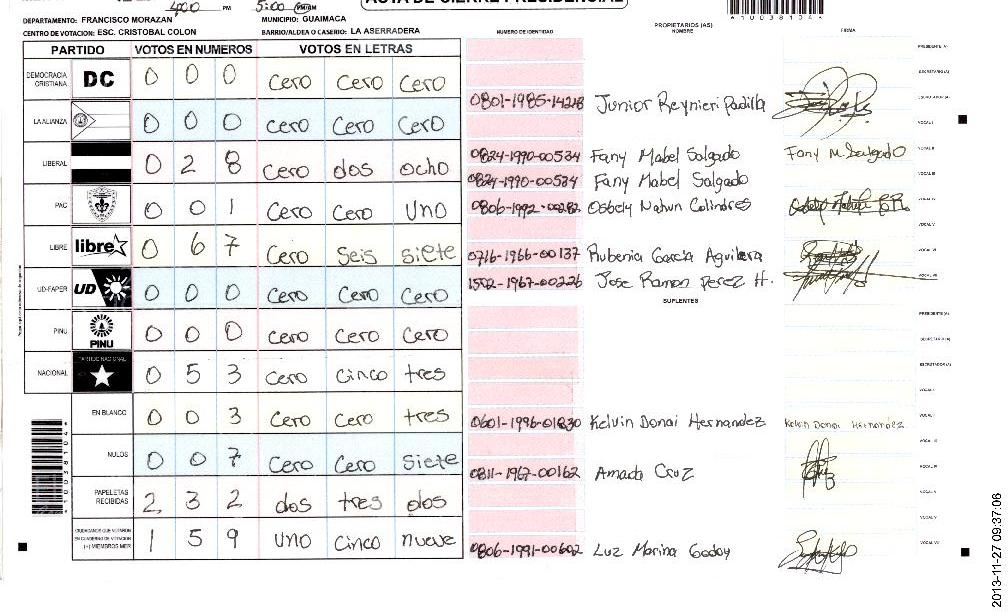 ACTA DE CIERRE PRESIDENCIAL
4:00 PM 5:00 PM/AM
DEPARTAMENTO: FRANCISCO MORAZAN MUNICIPIO: GUAIMACA
CENTRO DE VOTACION: ESC. CRISTOBAL COLON BARRIO/ALDEA O CASERIO: LA ASERRADERA
PARTIDO VOTOS EN NUMEROS VOTOS EN LETRAS
DEMOCRACIA CRISTIANA DC 0 0 0 Cero Cero Cero
LA ALIANZA 0 0 0 Cero Cero Cero
LIBERAL 0 2 8 Cero dos ocho
PAC 0 0 1 Cero Cero Uno
LIBRE libre 0 6 7 Cero Seis siete
UD-FAPER UD 0 0 0 Cero Cero Cero
PINU PINU 0 0 0 Cero Cero Cero
NACIONAL PARTIDO NACIONAL 0 5 3 Cero Cinco tres
EN BLANCO 0 0 3 Cero Cero tres
NULOS 0 0 7 Cero Cero Siete
PAPELETAS RECIBIDAS 2 3 2 dos tres dos
CIUDADANOS QUE VOTARON EN CUADERNO DE VOTACION (+) MIEMBROS MER 1 5 9 Uno Cinco nueve
PROPIETARIOS (AS)
NUMERO DE IDENTIDAD NOMBRE FIRMA
PRESIDENTE (A)
SECRETARIO (A)
0801-1985-14218 Junior Reynieri Padilla ESCRUTADOR (A)
VOCAL I
0824-1990-00534 Fany Mabel Salgado Fany M. Salgado VOCAL II
0824-1990-00534 Fany Mabel Salgado VOCAL III
0806-1992-00282 Osbely Nahun Colindres VOCAL IV
VOCAL V
0716-1966-00137 Rubenia Garcia Aguilera VOCAL VI
1502-1967-00226 Jose Ramon Perez H. VOCAL VII
SUPLENTES
PRESIDENTE (A)
SECRETARIO (A)
ESCRUTADOR (A)
VOCAL I
0601-1996-01830 Kelvin Donai Hernandez Kelvin Donai Hernandez
VOCAL III
0811-1967-00162 Amada Cruz VOCAL IV
VOCAL V
VOCAL VI
0806-1991-00602 Luz Marina Godoy VOCAL VII
*1003810 4*
*1003810 4*
2013-11-27 09:37:06